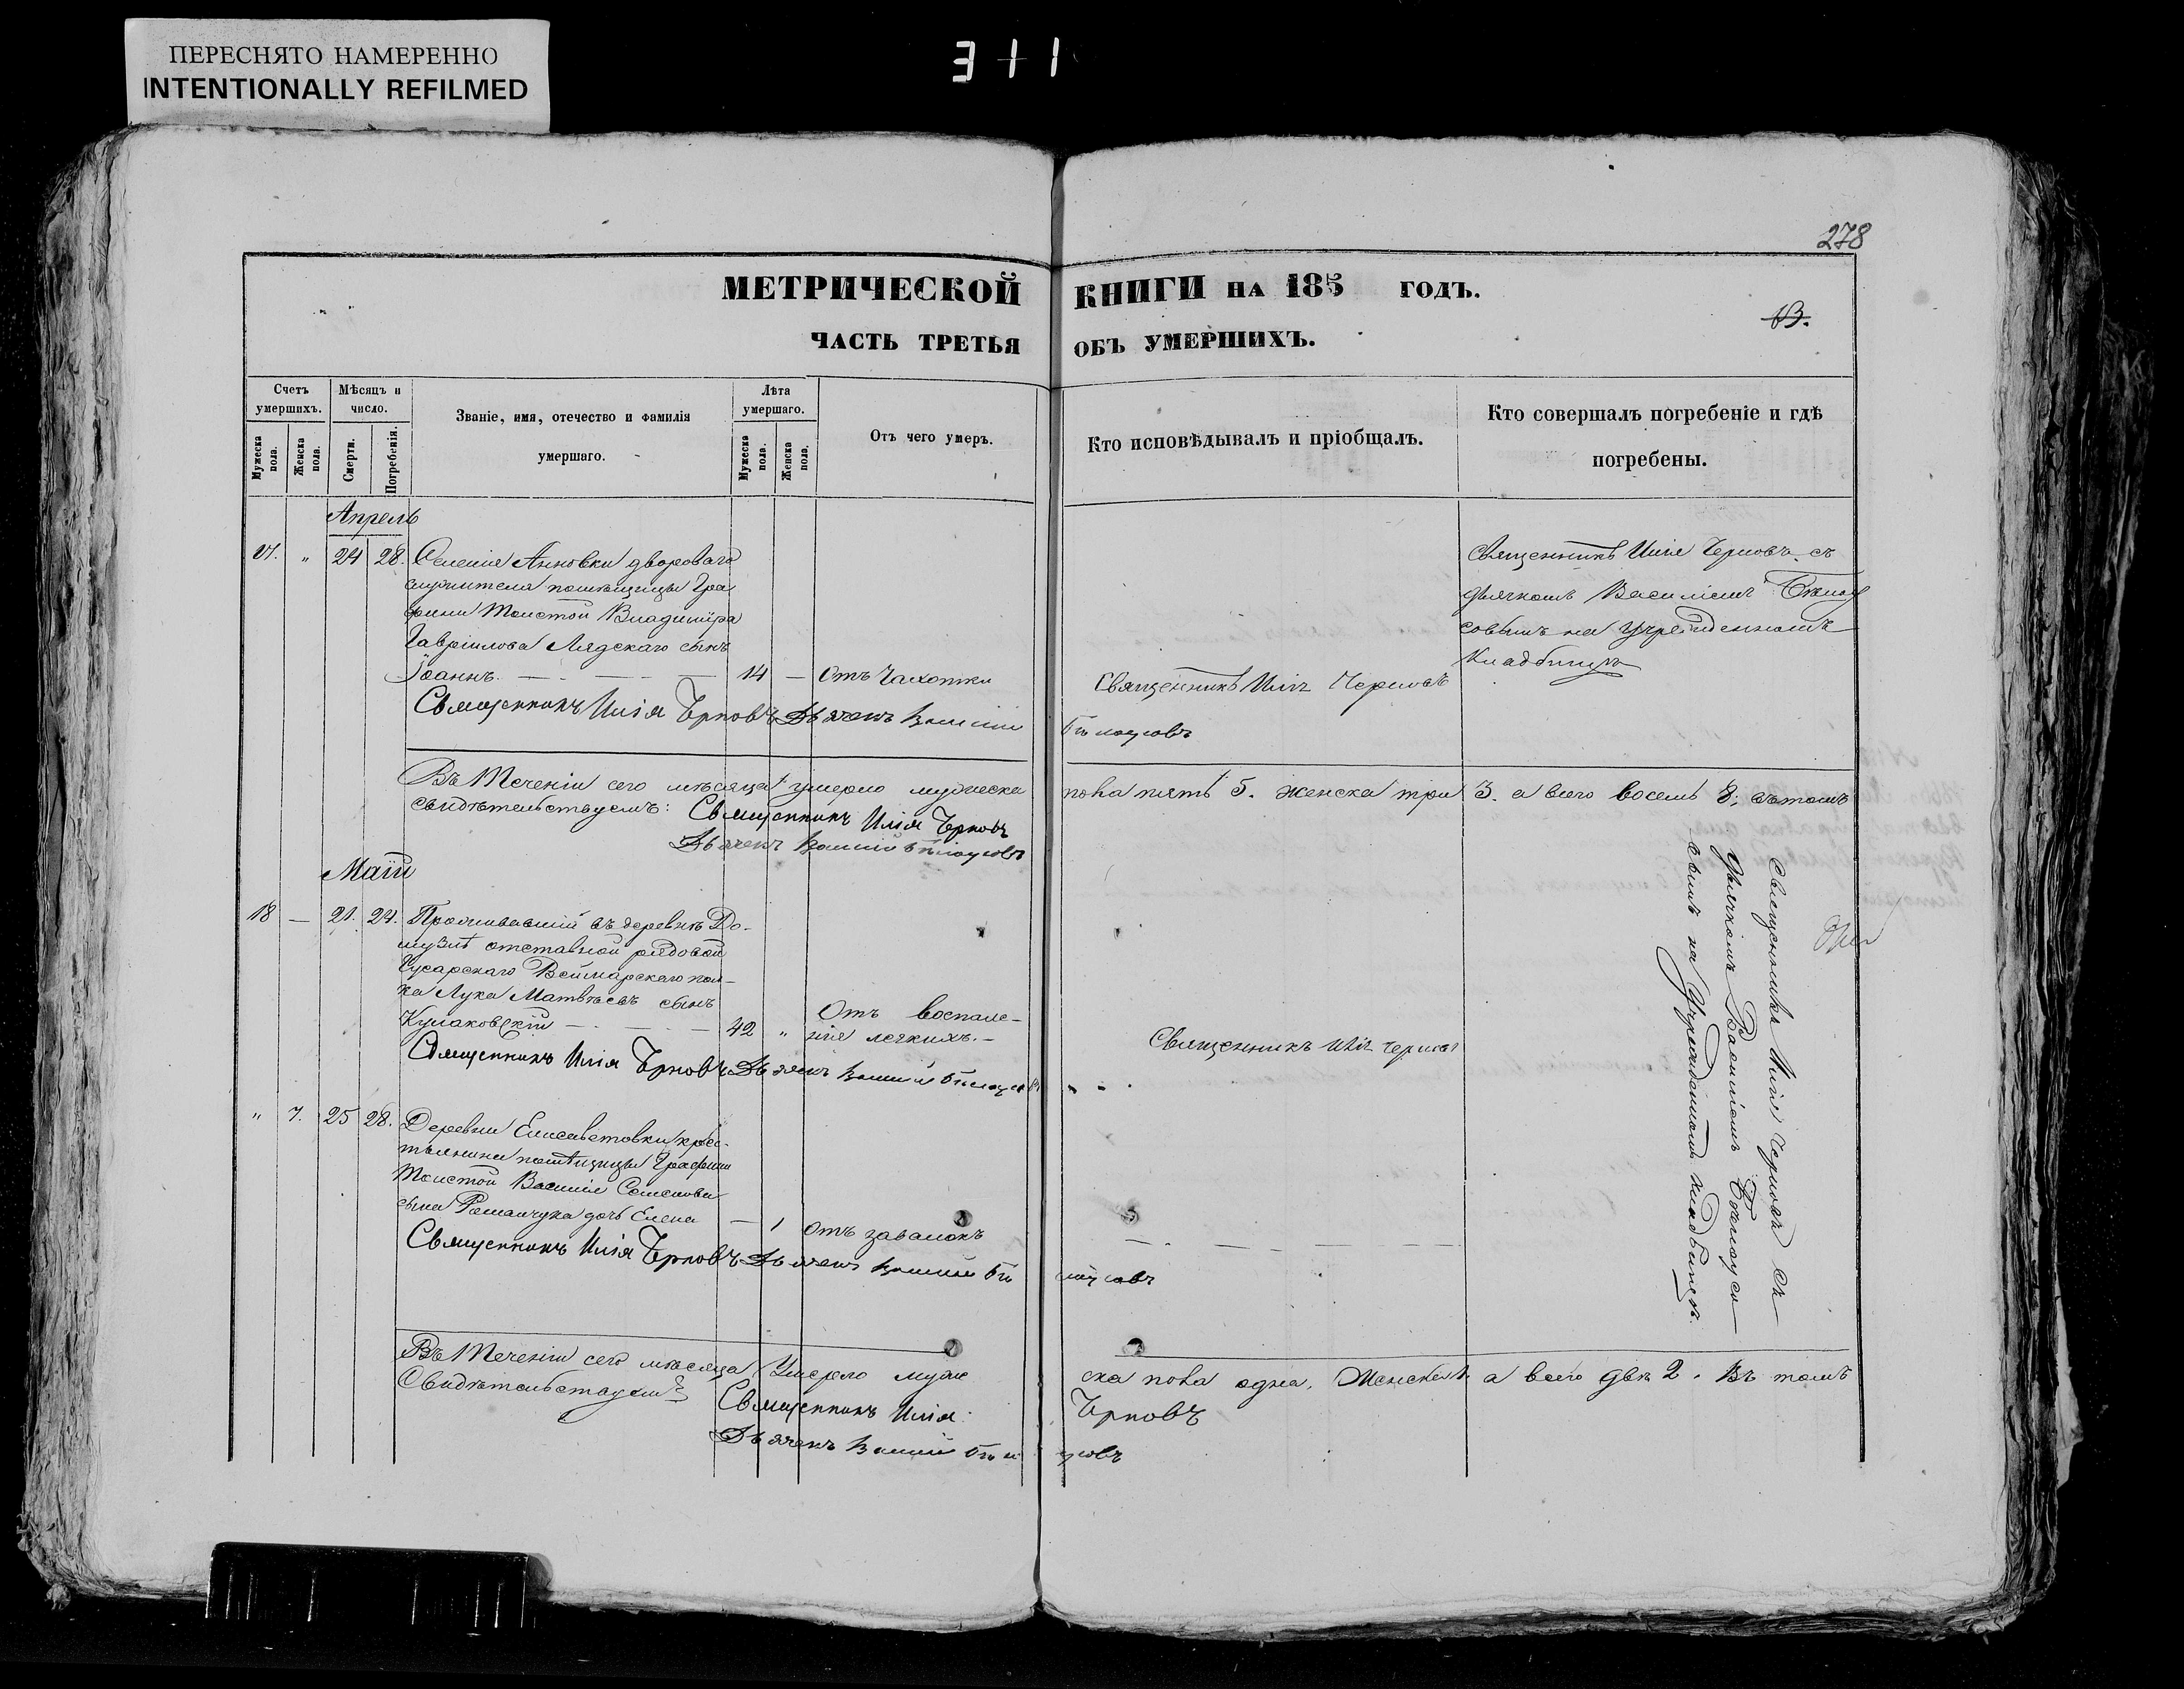 ПЕРЕСНЯТО НАМЕРЕННО
INTENTIONALLY REFILMED
278
МЕТРИЧЕСКОЙ КНИГИ НА 185 ГОДЪ.
13.
ЧАСТЬ ТРЕТЬЯ ОБЪ УМЕРШИХЪ.
Счетъ умершихъ.
Мужеска пола.
Женска пола.
Мѣсяцъ и число.
Смерти.
Погребенія.
Званіе, имя, отечество и фамилія
умершаго.
Лѣта умершаго.
Мужеска пола.
Женска пола.
Отъ чего умеръ.
Кто исповѣдывалъ и пріобщалъ.
Кто совершалъ погребеніе и гдѣ
погребены.
Апрель
" 24 28. Селенія Анновки двороваго
служителя помѣщицы Гра
фини Толстой Владиміра
Гавріилова Лядскаго сынъ
Іоаннъ. 14 — Отъ чахотки
Священникъ Илія Черновъ
Священникъ Илія Черновъ съ
дьячкомъ Василіемъ Бѣлоу
совымъ на учрежденномъ
кладбищѣ
Священникъ Илія Черновъ Дьячекъ Василій Бѣлоусовъ
Въ теченіи сего мѣсяца умерло мужеска пола пять 5. женска три 3. а всего восемь 8. въ томъ
свидѣтельствуемъ: Священникъ Илія Черновъ
Дьячекъ Василій Бѣлоусовъ
Маій
18 — 21. 24. Проживавшій въ деревнѣ До-
отставной рядовой
Гусарскаго Веймарскаго пол-
ка Лука Матвѣевъ сынъ
Кулаковскій — 42 " Отъ воспале-
нія легкихъ.
Священникъ Илія Черновъ
Священникъ Илія Черновъ Дьячекъ Василій Бѣлоусовъ
" 7. 25 28. Деревни Елисаветовки крес-
тьянина помѣщицы Графини
Толстой Василія Семенова
сына Романчука дочь Елена — 1 Отъ завалокъ
Священникъ Илія Черновъ Дьячекъ Василій Бѣлоусовъ
Священникъ Илія Черновъ съ
дьячкомъ Василіемъ Бѣлоусо
вымъ на учрежданномъ кладбищѣ.
Въ теченіи сего мѣсяца умерло муже ска пола одна, Женска 1. а всего два 2. Въ томъ
Свидѣтельствуемъ
Священникъ Илія Черновъ
Дьячекъ Василій Бѣлоусовъ